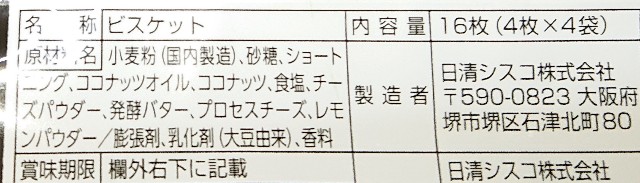 名称 ビスケット 内容量 16枚(4枚×4袋)
原材料名 小麦粉(国内製造)、砂糖、ショート
ニング、ココナッツオイル、ココナッツ、食塩、チー
ズパウダー、発酵バター、プロセスチーズ、レモ
ンパウダー/膨張剤、乳化剤(大豆由来)、香料
製造者 日清シスコ株式会社
〒590-0823 大阪府
堺市堺区石津北町80
賞味期限 欄外右下に記載
日清シスコ株式会社